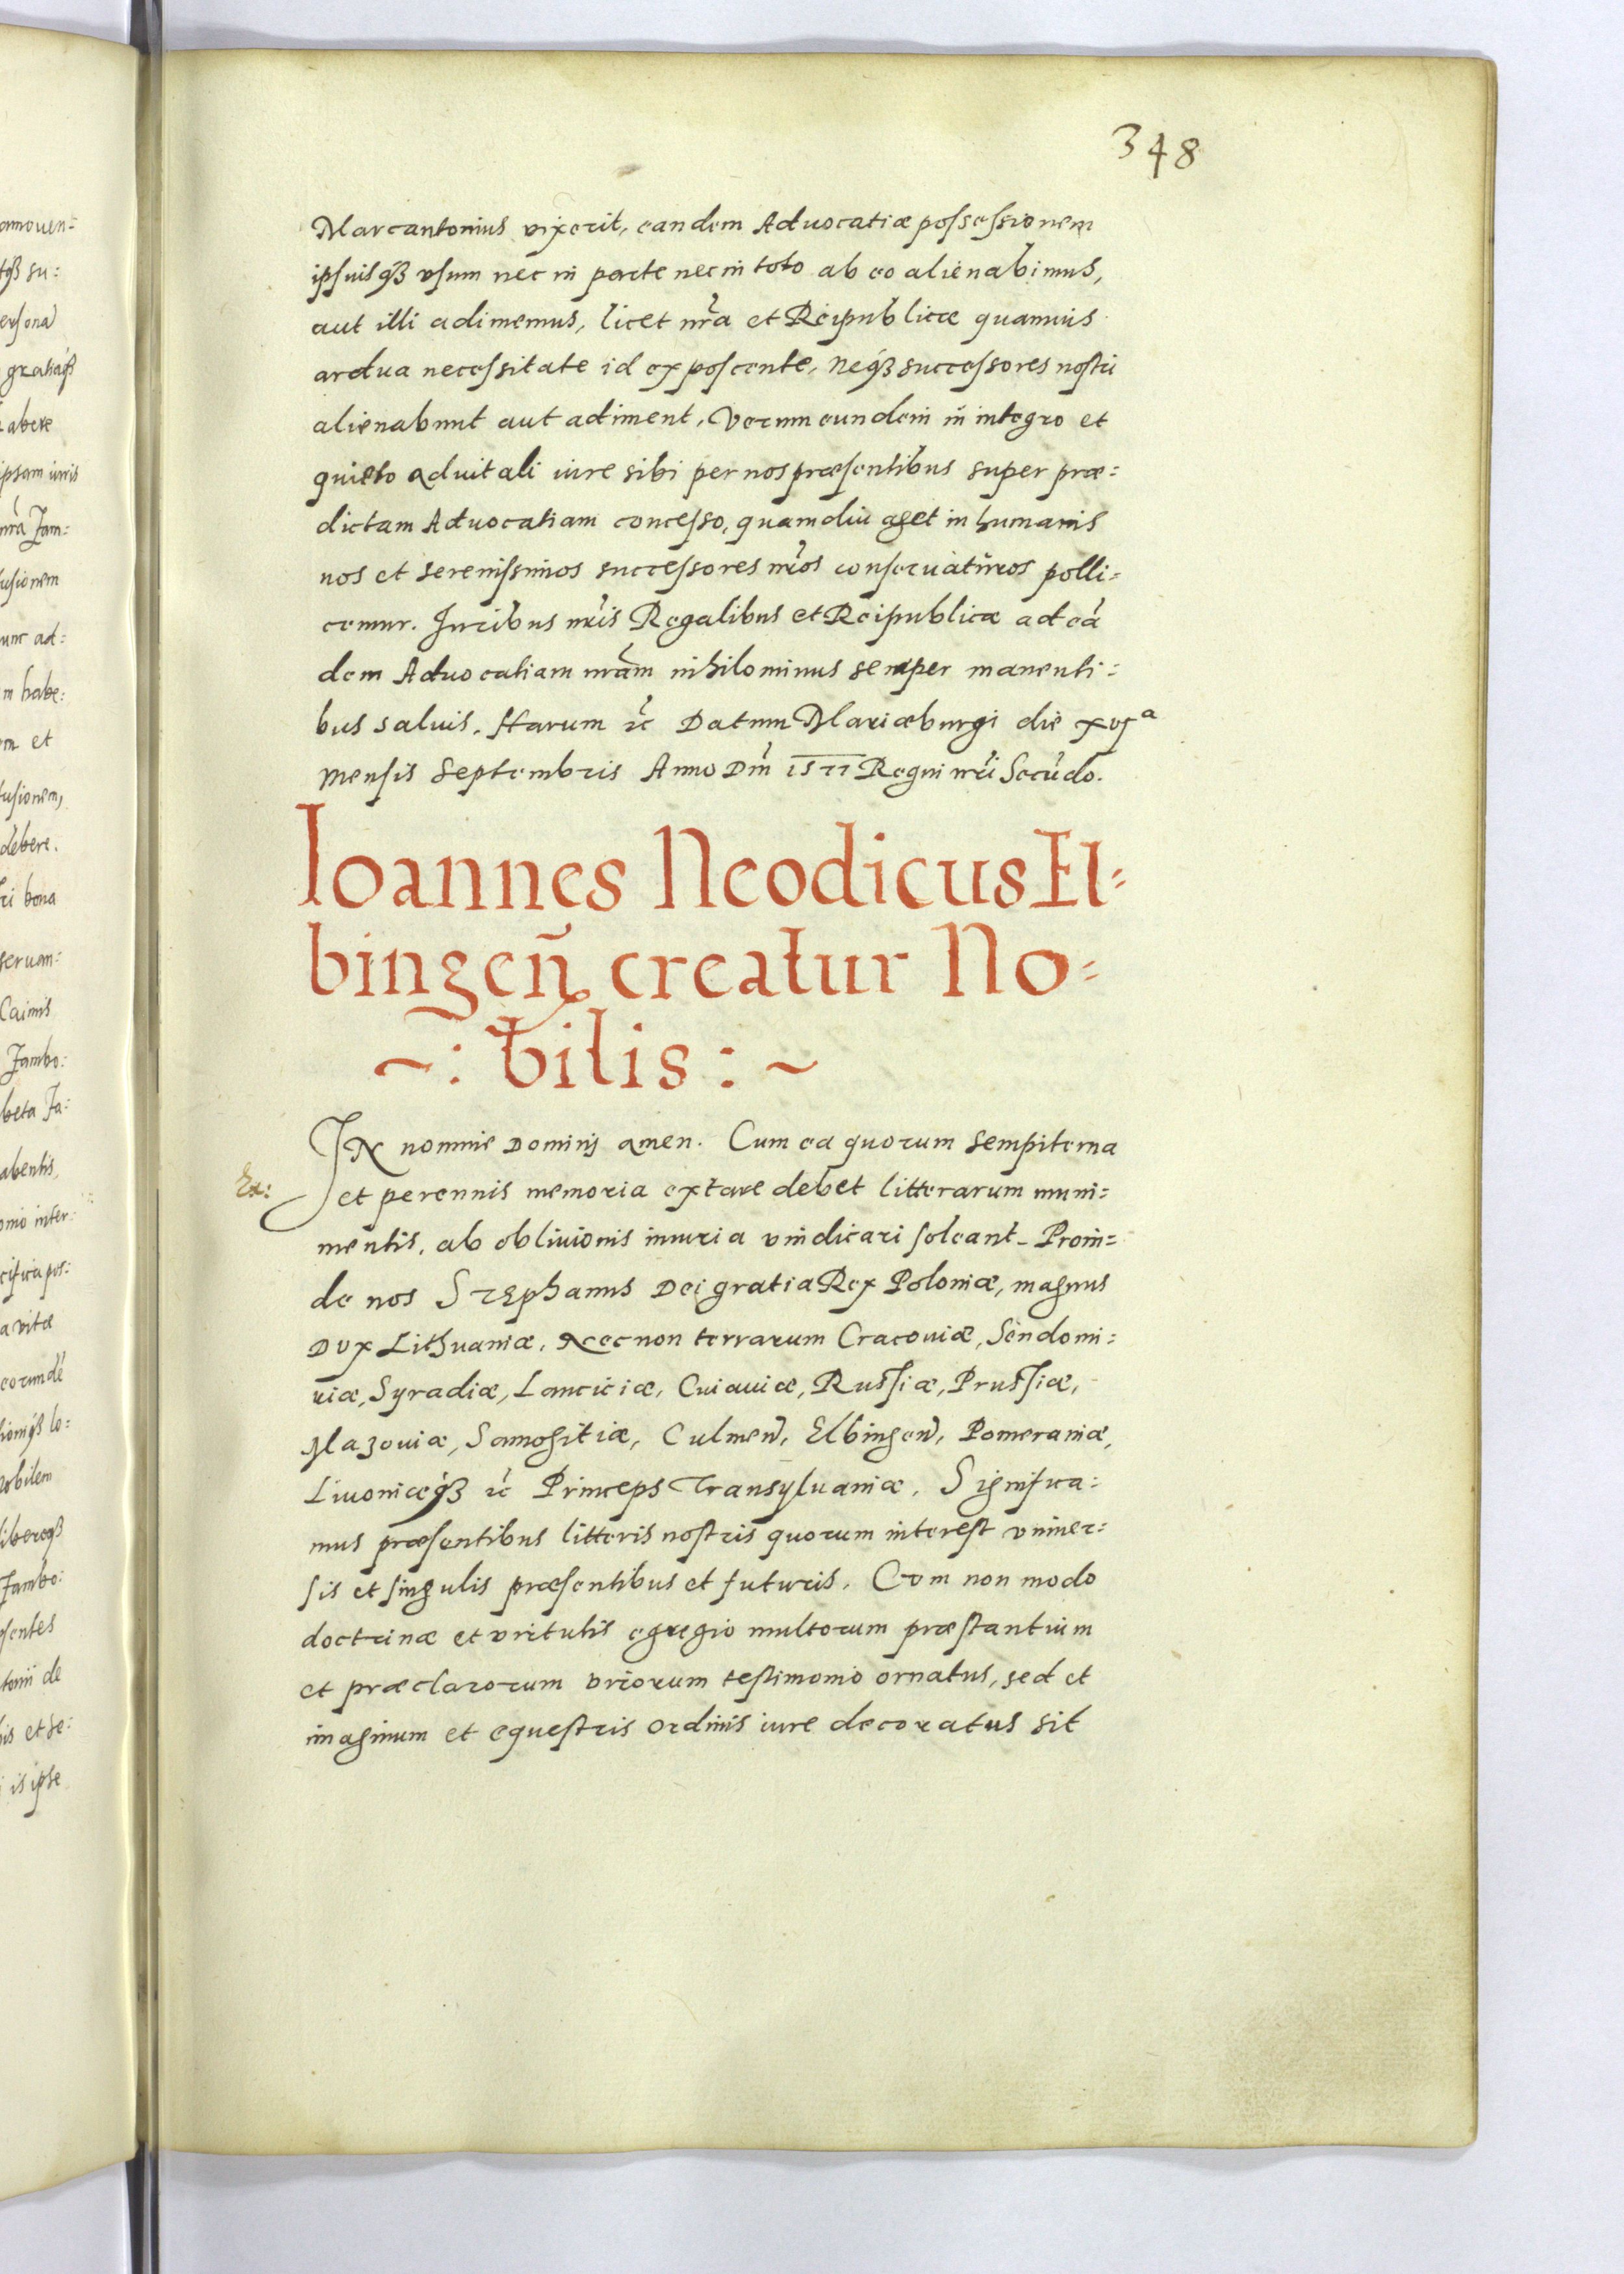 348
Marcantonius vixerit, eandem Advocatiæ possessionem
ipsuisqꝫ vsum nec in parte nec in toto ab eo alienabimus,
aut illi adimemus, licet nr̃a et Reipublicæ quamuis
ardua necessitate id exposcente, neqꝫ successores nostri
alienabunt aut adiment, Verum eundem in integro et
quieto aduitali iure sibi per nos præsentibus super præ=
dictam Aduocatiam concesso, quamdiu aget in humanis
nos et serenissimos successores nr̃os conseruaturos polli=
cemur. Iuribus nr̃is Regalibus et Reipublicæ ad eã
dem Aduocatiam nr̃am nihilominus semper manenti=
bus saluis. Harum ꝛc̃ Datum Mariæburgi die xvjᵃ
Mensis Septembris Anno Dm̃ 1577 Regni nr̃i Secũdo.
Ioannes Neodicus El=
bingeñ creatur No=
~: bilis : ~
Ex:
IN nomine Dominj amen. Cum ea quorum sempiterna
et perennis memoria extare debet litterarum muni=
mentis, ab obliuionis iniuria vindicari soleant. Proin=
de nos Stephanus Dei gratia Rex Poloniæ, magnus
Dux Lithuaniæ, Necnon terrarum Cracouiæ, Sendomi=
riæ, Syradiæ, Lanciciæ, Cuiauiæ, Russiæ, Prussiæ,
Mazouiæ, Samogitiæ, Culmeñ, Elbingeñ, Pomeraniæ,
Liuoniæqꝫ ꝛc̃ Princeps Transyluaniæ. Significa=
mus præsentibus litteris nostris quorum interest vniuer=
sis et singulis præsentibus et futuris. Cum non modo
doctrinæ et virtutis egregio multorum præstantium
et præclarorum virorum testimonio ornatus, sed et
imaginum et equestris ordinis iure decoratus sit